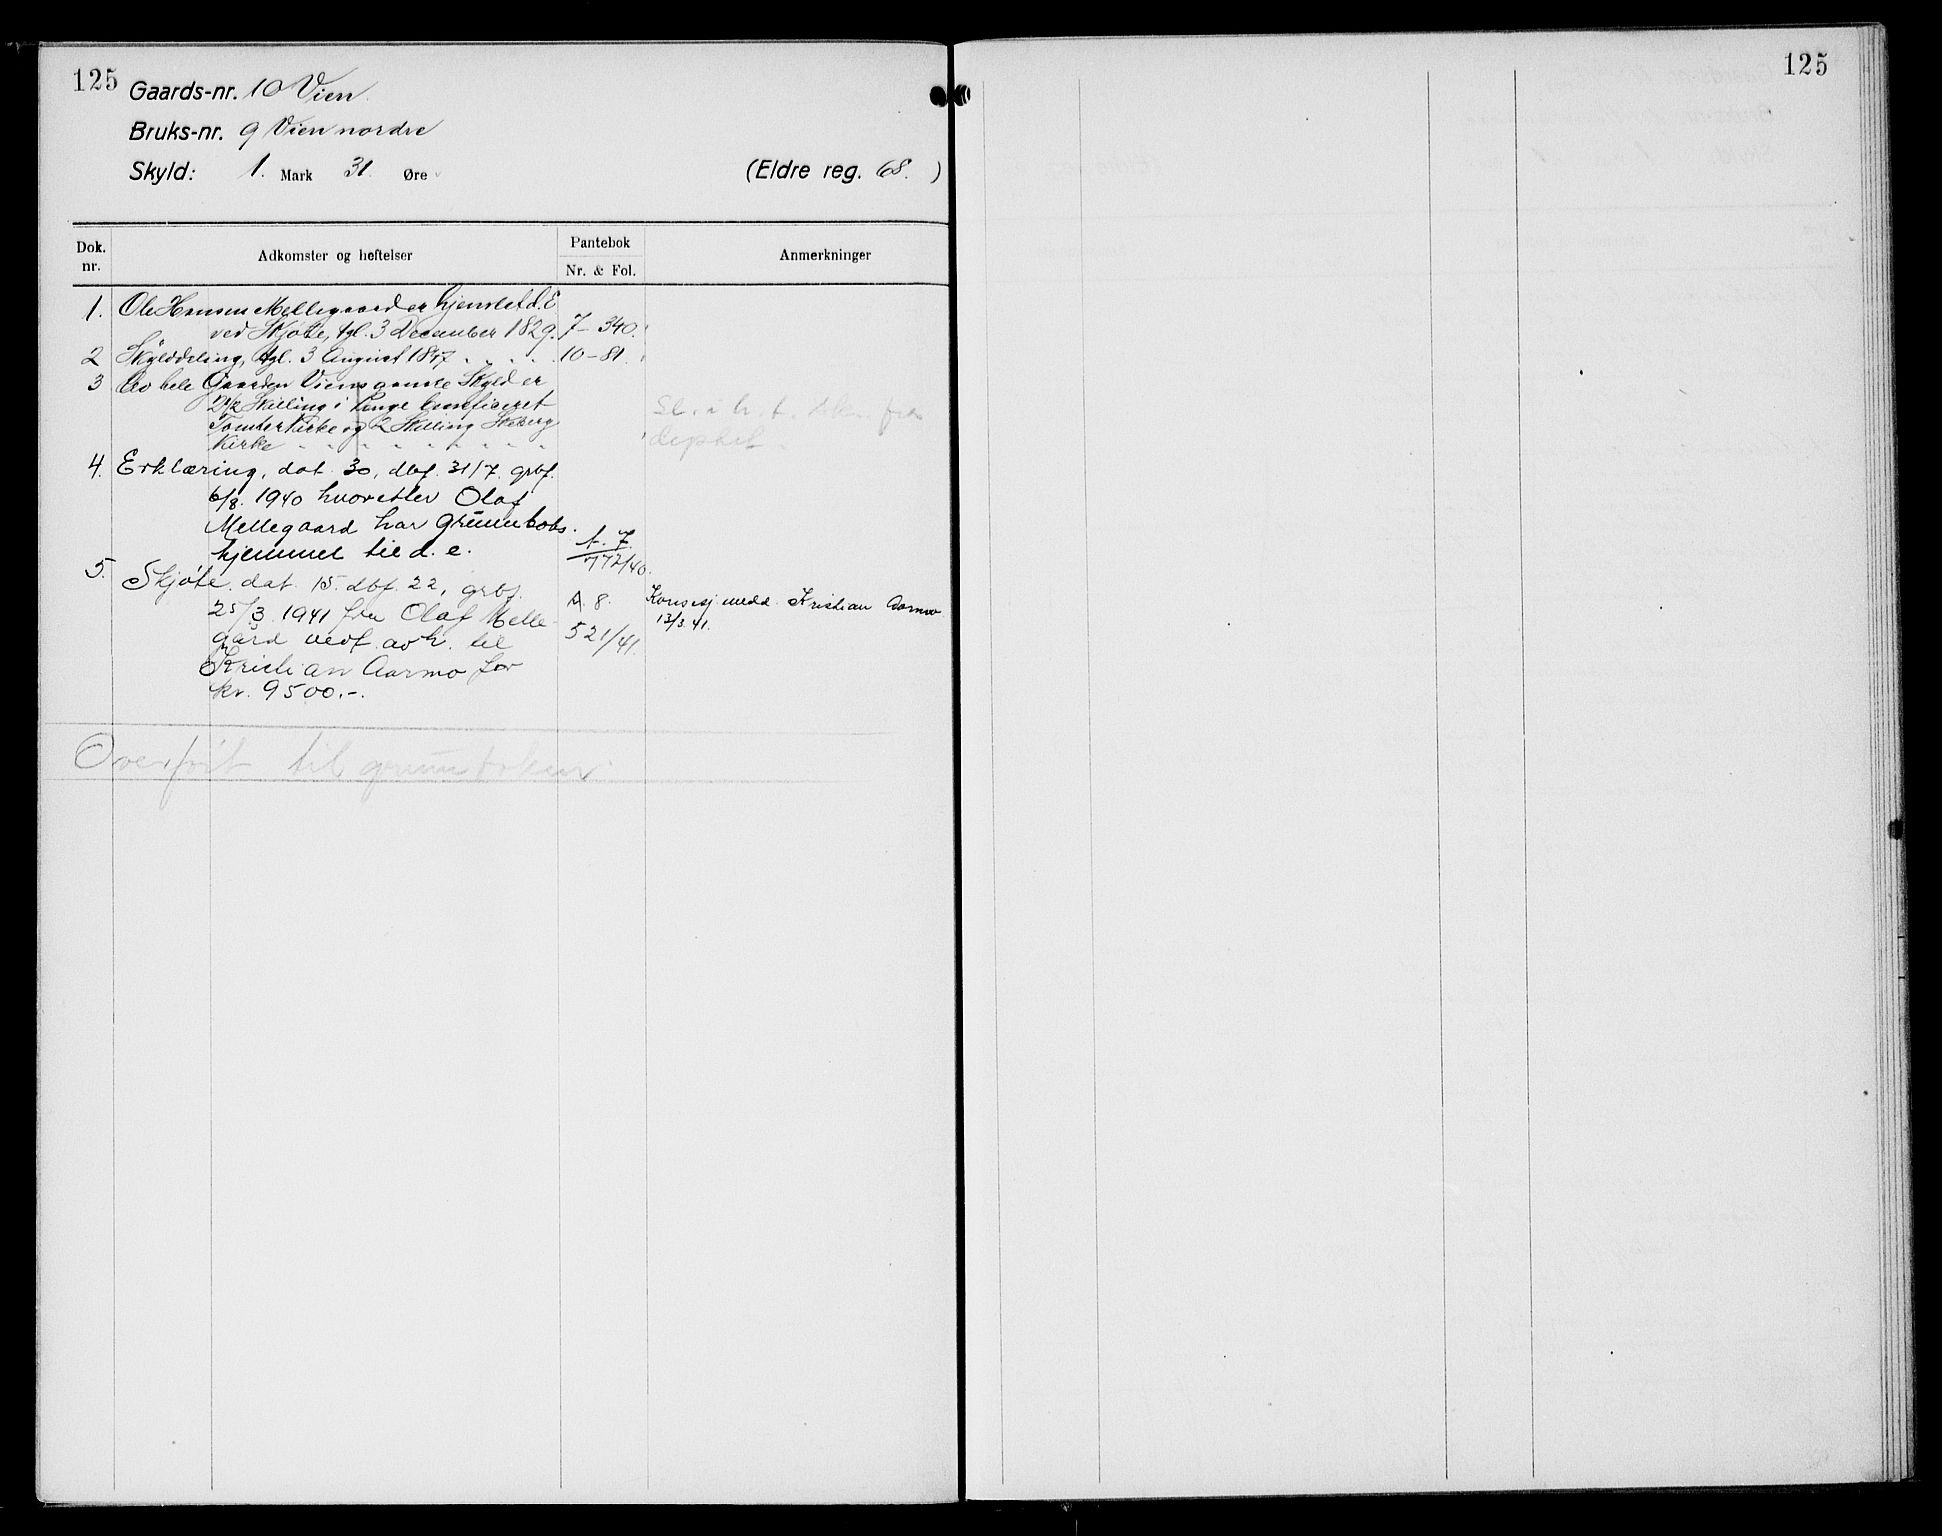 125
Gaards-nr. 10 Vien
Bruks-nr. 9 Vien nordre
Skyld: 1. Mark 31. Øre
(Eldre reg. 68. )
Dok. nr.
Adkomster og heftelser
Pantebok
Nr. & Fol.
Anmerkninger
1. Ole Hansen Mellegaard er hjemlet d. E
ved Skjøte, tgl. 3 December 1829. 7 – 340.
2 Skylddeling, tgl. 3 August 1847 10 – 81
3 Av hele Gaarden Viens gamle Skyld er
2 1/2 Skilling i Penge beneficeret
Tomter Kirke og 2 Skilling Skeberg
Kirke
Sl. i h. t. skr. fra
deptet.
4. Erklæring, dat. 30, dbf. 31/7. grbf.
6/8. 1940 hvoretter Olaf
Mellegaard har grunnboks-
hjemmel til d. e.
A. 7.
772/40.
5. Skjøte, dat. 15. dbf. 22, grbf.
25/3 1941 fra Olaf Melle-
gård vedf. avh. til
Kristian Aarmo for
kr. 9500.-.
A. 8.
521/41.
Konsesj. medd. Kristian Aarmo
13/3.41.
Overført til grunnboken
125